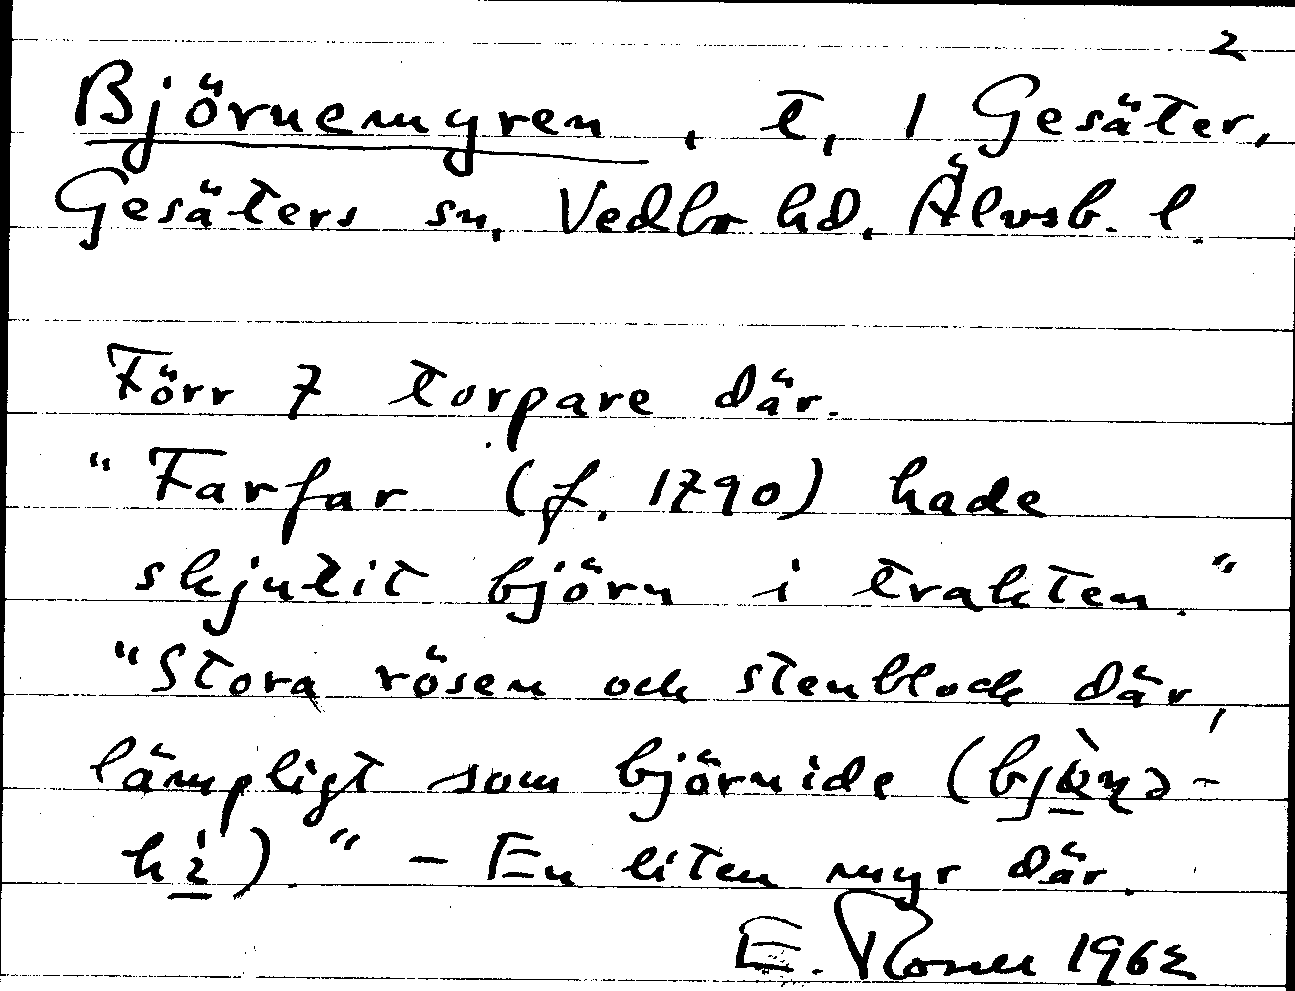 2
Björnemyren, t, 1 Gesäter,
Gesäters sn, Vedbo hd. Älvsb. l.
Förr 7 torpare där.
"Farfar (f. 1790) hade
skjutit björn i trakten."
"Stora rösen och stenblock där,
lämpligt som björnide (
)." – En liten myr där.
E. 1962